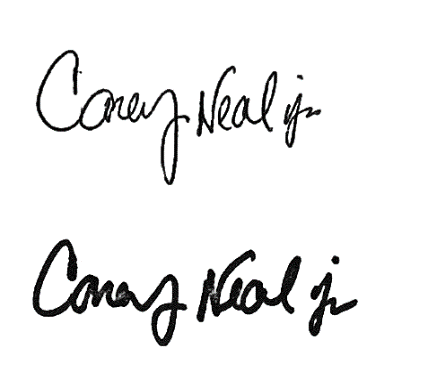 Corey Neal jr
Corey Neal jr